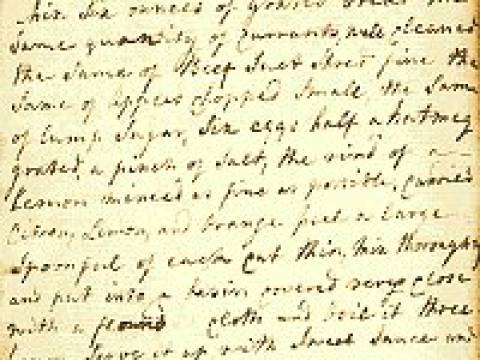 Mix Six ounces of grated bread the
same quantity of Currants, well cleaned
the same of Beef Suet shred fine the
same of Apples chopped small, the same
of lump Sugar, Six eggs half a Nutmeg
grated, a pinch of Salt, the rind of a
Lemon minced as fine as possible, Candied
Citron, Lemon, and Orange peel a large
Spoonful of each cut thin, Mix thoroughly
and put into a basin covered very close
with a floured cloth and boil it three
Serve it up with Sweet Sauce